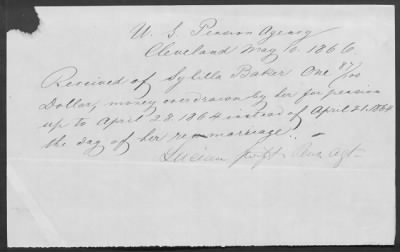 U. S. Pension Agency
Cleveland May 6. 1866
Received of Sybilla Baker One 87/100
Dollars, money overdrawn by her for pension
up to April 28 1864 instead of April 21 1864
the day of her remarriage. -
Lucien Swift Pens. Agt.